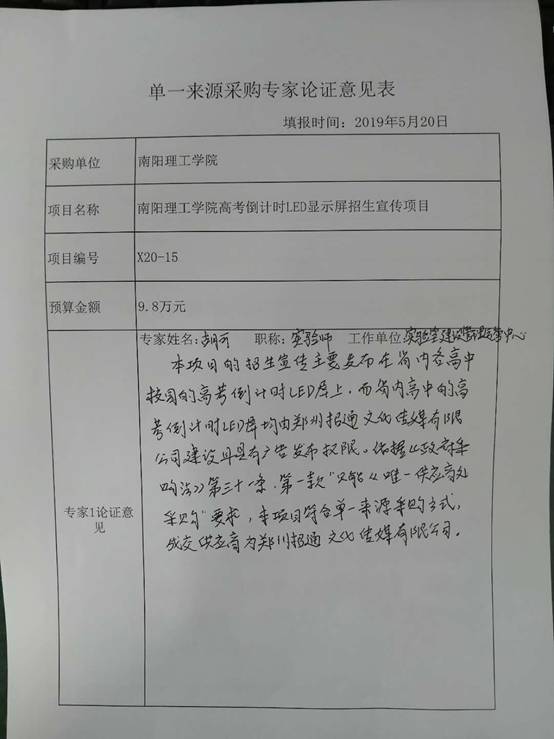 单一来源采购专家论证意见表
填报时间：2019年5月20日
采购单位 南阳理工学院
项目名称 南阳理工学院高考倒计时LED显示屏招生宣传项目
项目编号 X20-15
预算金额 9.8万元
专家姓名：胡可 职称：实验师 工作单位 实验室建设管理中心
本项目的招生宣传主要发布在省内各高中
校园的高考倒计时LED屏上，而省内高中的高
考倒计时LED屏均由郑州报通文化传媒有限
公司建设且具有广告发布权限。依据《政府采
购法》第三十一条.第一款"只能从唯一供应商处
采购"要求，本项目符合单一来源采购方式，
成交供应商为郑州报通文化传媒有限公司。
专家1论证意
见